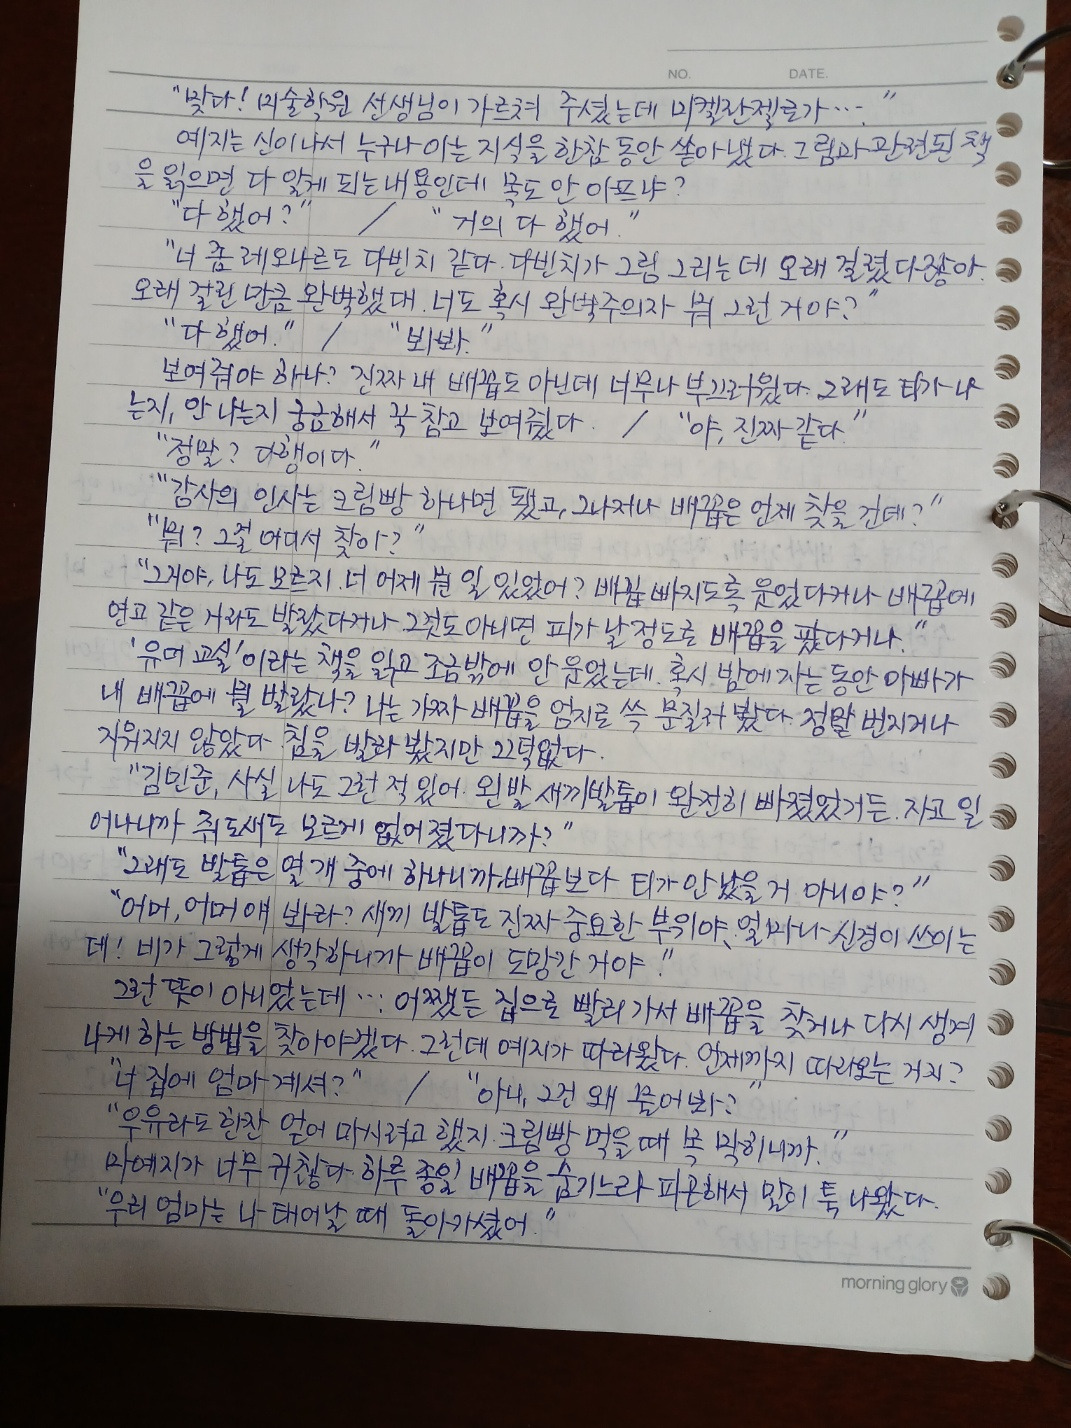 NO. DATE.
"맞다! 미술학원 선생님이 가르쳐 주셨는데 미켈란젤로가…."
예지는 신이 나서 누구나 아는 지식을 한참 동안 쏟아 냈다. 그림과 관련된 책
을 읽으면 다 알게 되는 내용인데 목도 안 아프냐?
"다 했어?" / "거의 다 했어."
"너 좀 레오나르도 다빈치 같다. 다빈치가 그림 그리는 데 오래 걸렸다잖아.
오래 걸린 만큼 완벽했대. 너도 혹시 완벽주의자 뭐 그런 거야?"
"다 했어." / "봐봐."
보여줘야 하나? 진짜 내 배꼽도 아닌데 너무나 부끄러웠다. 그래도 티가 나
는지, 안 나는지 궁금해서 꾹 참고 보여줬다. / "야, 진짜 같다."
"정말? 다행이다."
"감사의 인사는 크림빵 하나면 됐고, 그나저나 배꼽은 언제 찾을 건데?"
"뭐? 그걸 어디서 찾아?"
"그거야, 나도 모르지. 너 어제 뭔 일 있었어? 배꼽 빠지도록 웃었다거나 배꼽에
연고 같은 거라도 발랐다거나 그것도 아니면 피가 날 정도로 배꼽을 팠다거나."
'유머 교실'이라는 책을 읽고 조금밖에 안 웃었는데. 혹시 밤에 자는 동안 아빠가
내 배꼽에 뭘 발랐나? 나는 가짜 배꼽을 엄지로 쓱 문질러 봤다. 정말 번지거나
지워지지 않았다. 침을 발라 봤지만 끄덕없다.
"김민준, 사실 나도 그런 적 있어. 왼발 새끼발톱이 완전히 빠졌었거든. 자고 일
어나니까 쥐도새도 모르게 없어졌다니까?"
"그래도 발톱은 열 개 중에 하나니까, 배꼽보다 티가 안 났을 거 아니야?"
"어머, 어머 얘 봐라? 새끼 발톱도 진짜 중요한 부위야, 얼마나 신경이 쓰이는
데! 네가 그렇게 생각하니까 배꼽이 도망간 거야!"
그런 뜻이 아니었는데…. 어쨌든 집으로 빨리 가서 배꼽을 찾거나 다시 생겨
나게 하는 방법을 찾아야겠다. 그런데 예지가 따라왔다. 언제까지 따라오는 거지?
"너 집에 엄마 계셔?" / "아니, 그건 왜 물어봐?"
"우유라도 한잔 얻어 마시려고 했지. 크림빵 먹을 때 목 막히니까."
마예지가 너무 귀찮다. 하루 종일 배꼽을 숨기느라 피곤해서 말이 툭 나왔다.
"우리 엄마는 나 태어날 때 돌아가셨어."
morning glory